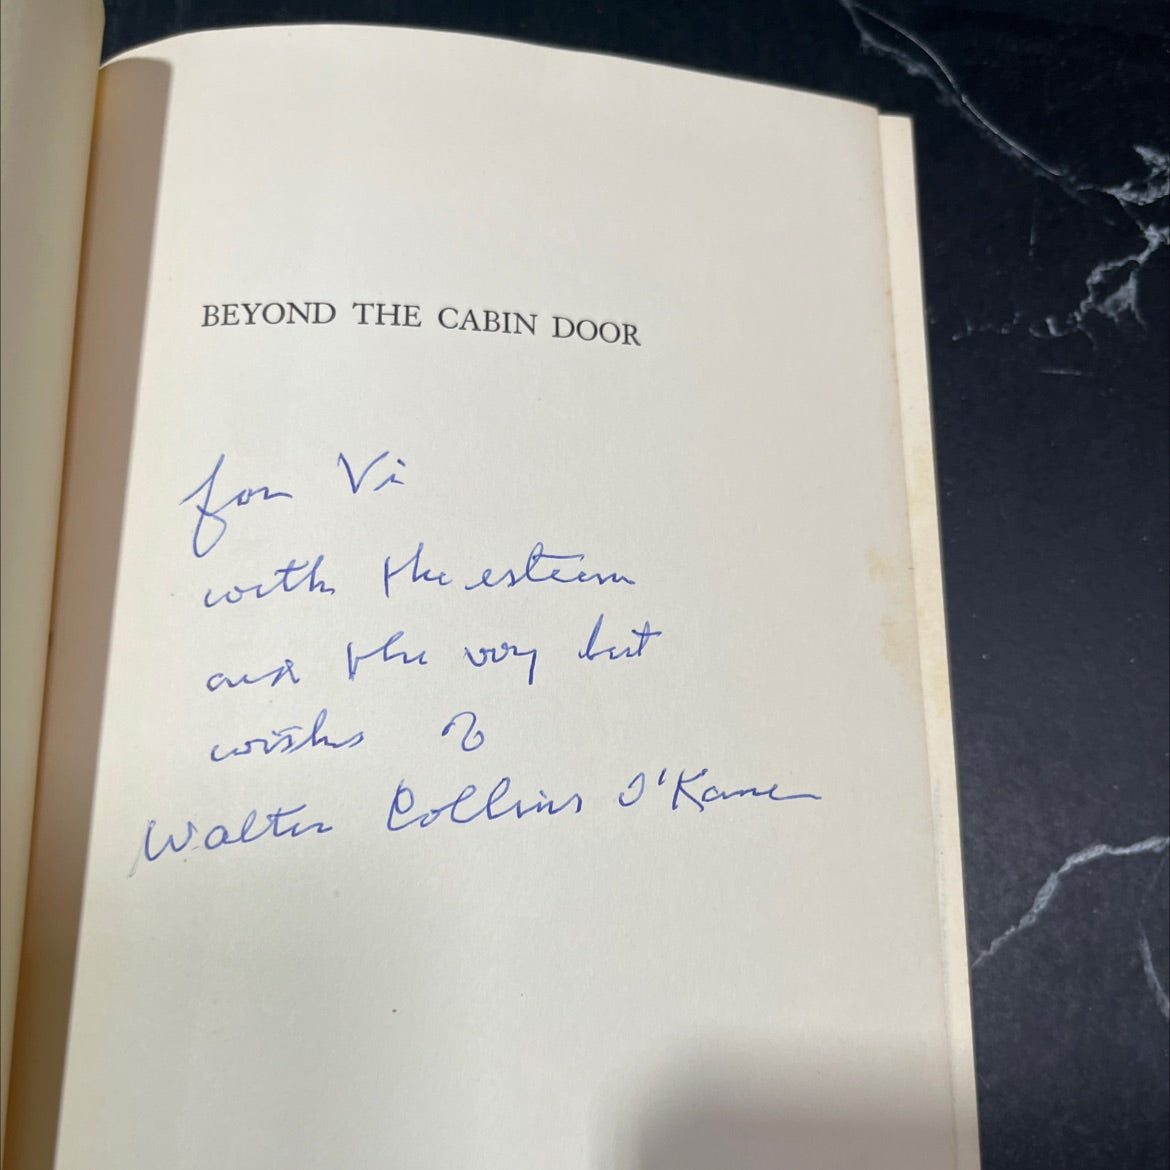 BEYOND THE CABIN DOOR
for Vi
with the esteem
and the very best
wishes of
Walter Collins O'Kane